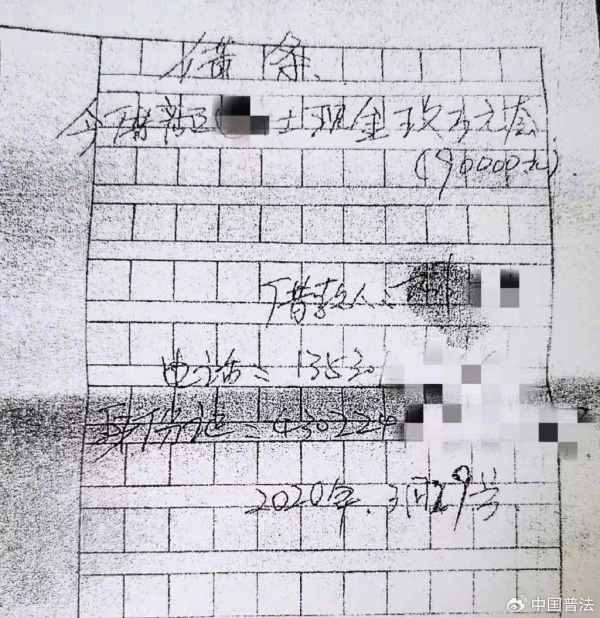 借条
今借到 士现金玖万元整
(90000元)
借款人:
电话:1353
身份证:430224
2020年.3月29号
中国普法